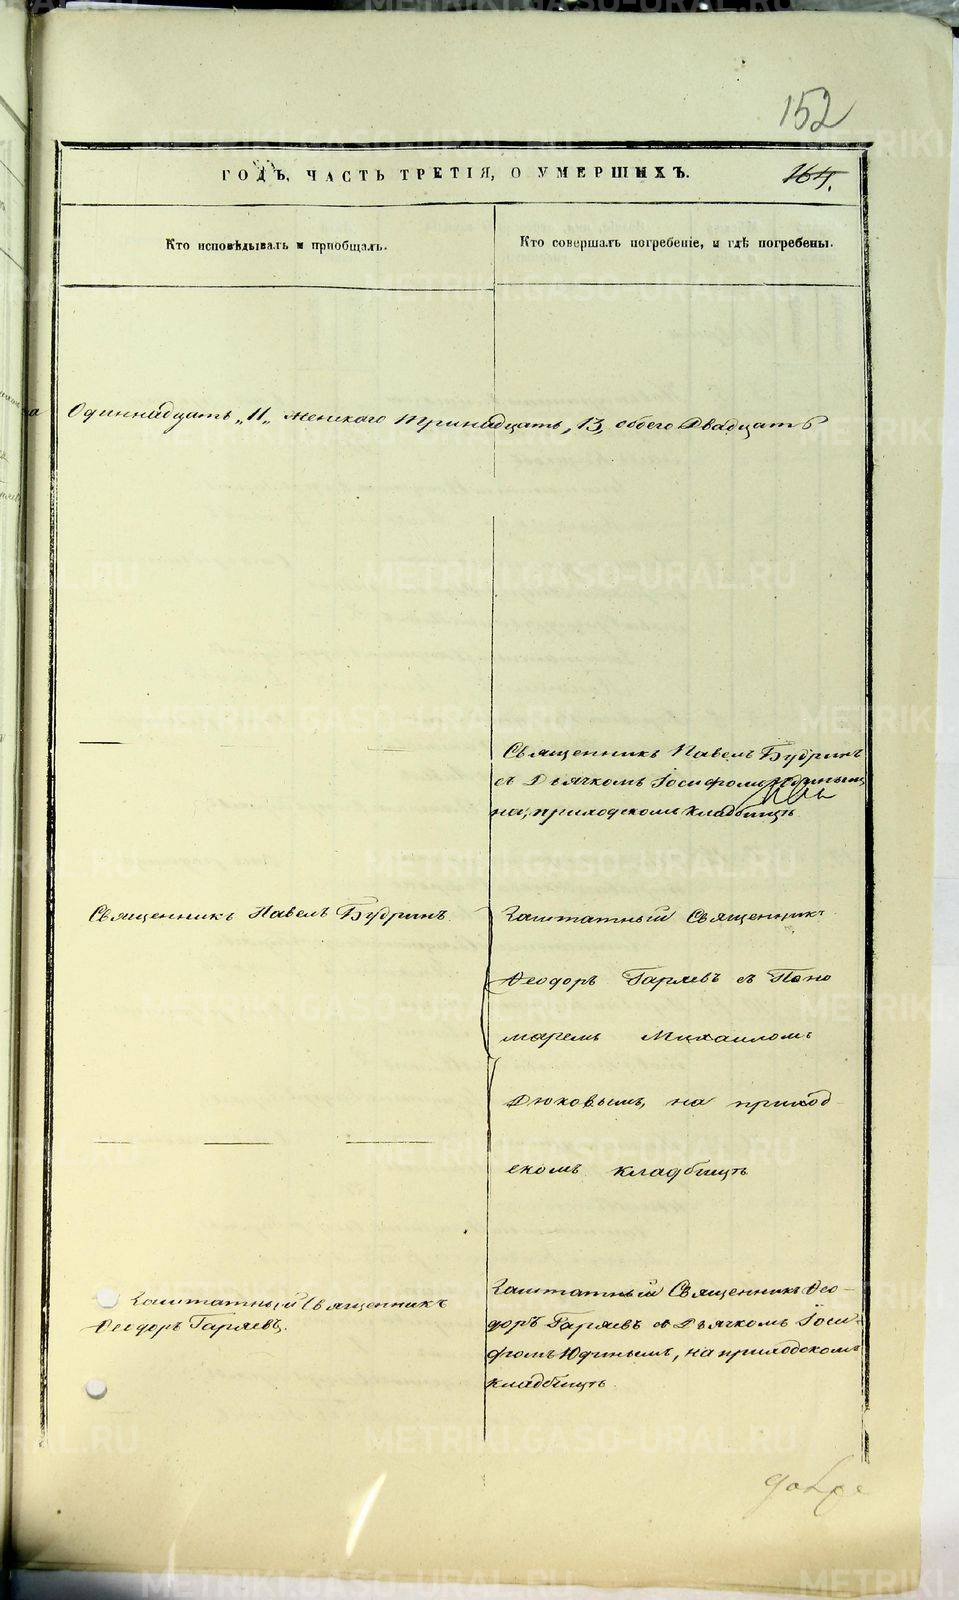 152
ГОДЪ, ЧАСТЬ ТРЕТІЯ, О УМЕРШИХЪ.
164.
Кто исповѣдывалъ и пріобщалъ.
Кто совершалъ погребеніе, и гдѣ погребены.
Одиннадцать „11„ женскаго тринадцать „13„ обоего Двадцать
Священникъ Павелъ Будринъ
съ Дьячкомъ Іосифомъ Юдинымъ
на приходскомъ кладбищѣ
Священникъ Павелъ Будринъ.
Заштатный Священникъ
Ѳеодоръ Гаряевъ съ Поно
маремъ Михаиломъ
Дюковымъ, на приход
скомъ кладбищѣ
Заштатный Священникъ
Ѳеодоръ Гаряевъ.
Заштатный Священникъ Ѳео-
доръ Гаряевъ съ Дьячкомъ Іоси-
фомъ Юдинымъ, на приходскомъ
кладбищѣ.
METRIKI.GASO-URAL.RU